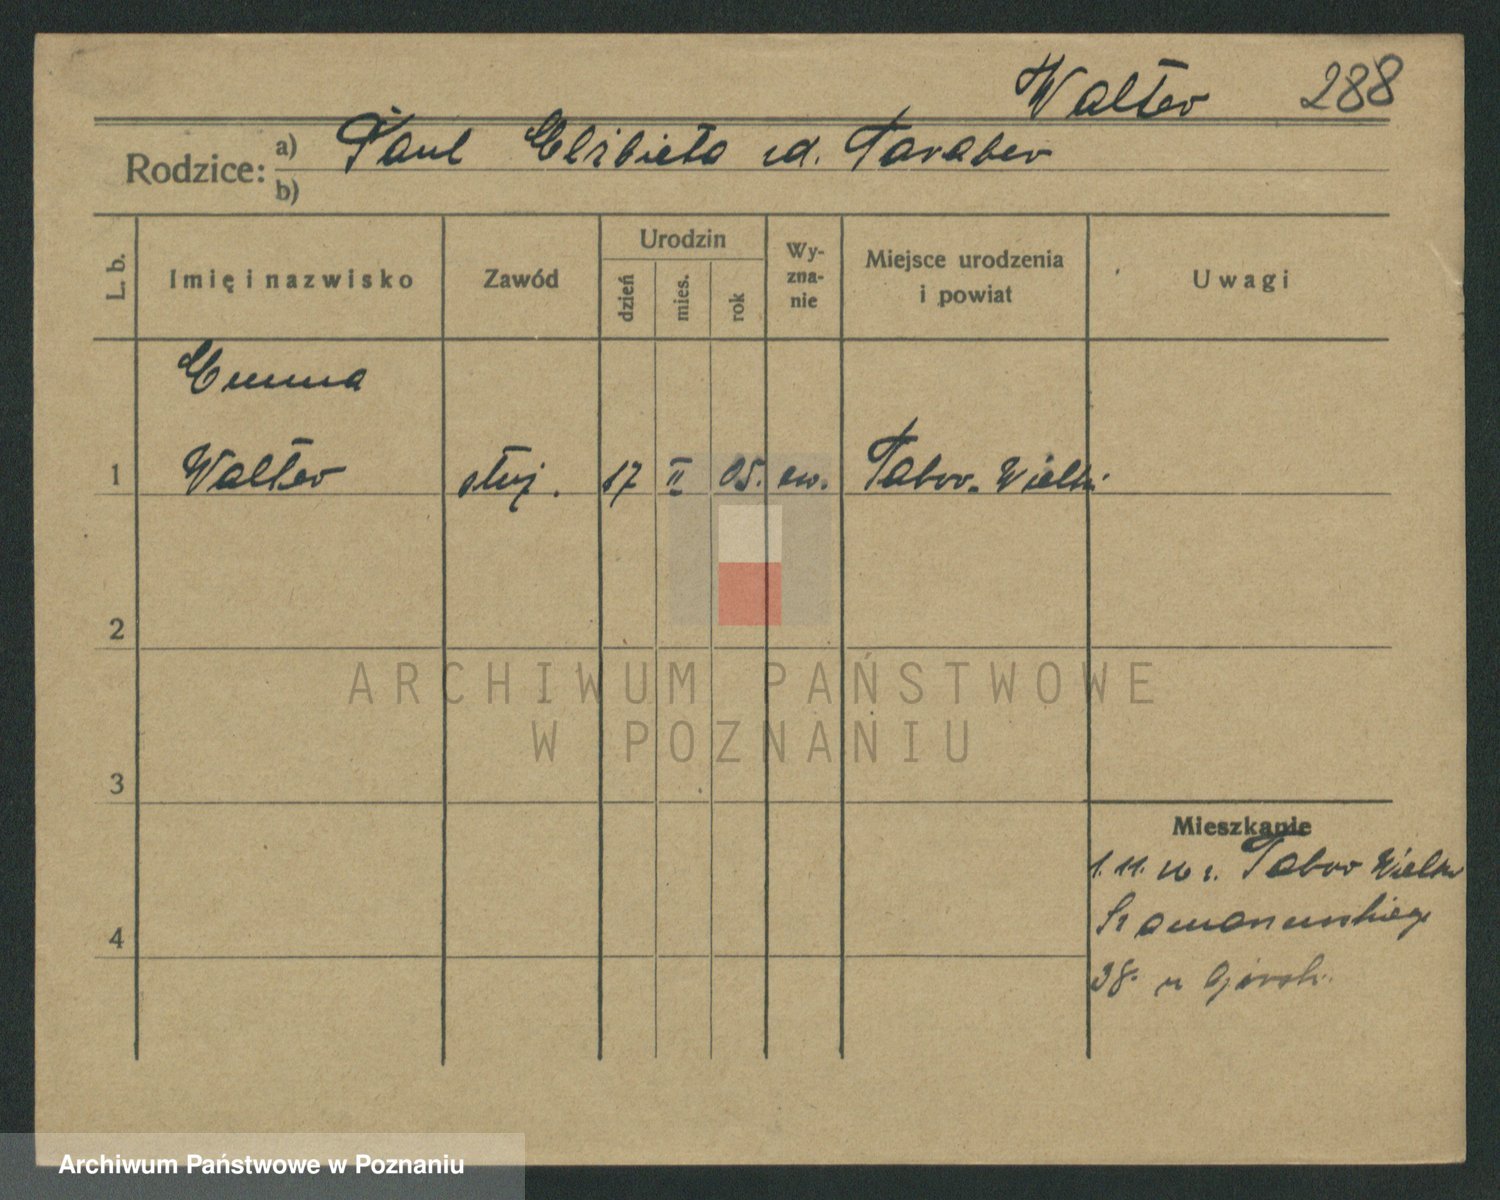 Walter 288
Rodzice: a) Paul Elżbieta zd. Taraber
b)
L. b. Imię i nazwisko Zawód Urodzin dzień mies. rok Wy-zna-nie Miejsce urodzenia i powiat Uwagi
Emma
1 Walter służ. 17 II 05. ew. Tabor-Wielki
2
ARCHIWUM PAŃSTWOWE
W POZNANIU
3
Mieszkanie
1.11. r. Tabor Wielki
4
38. u
Archiwum Państwowe w Poznaniu